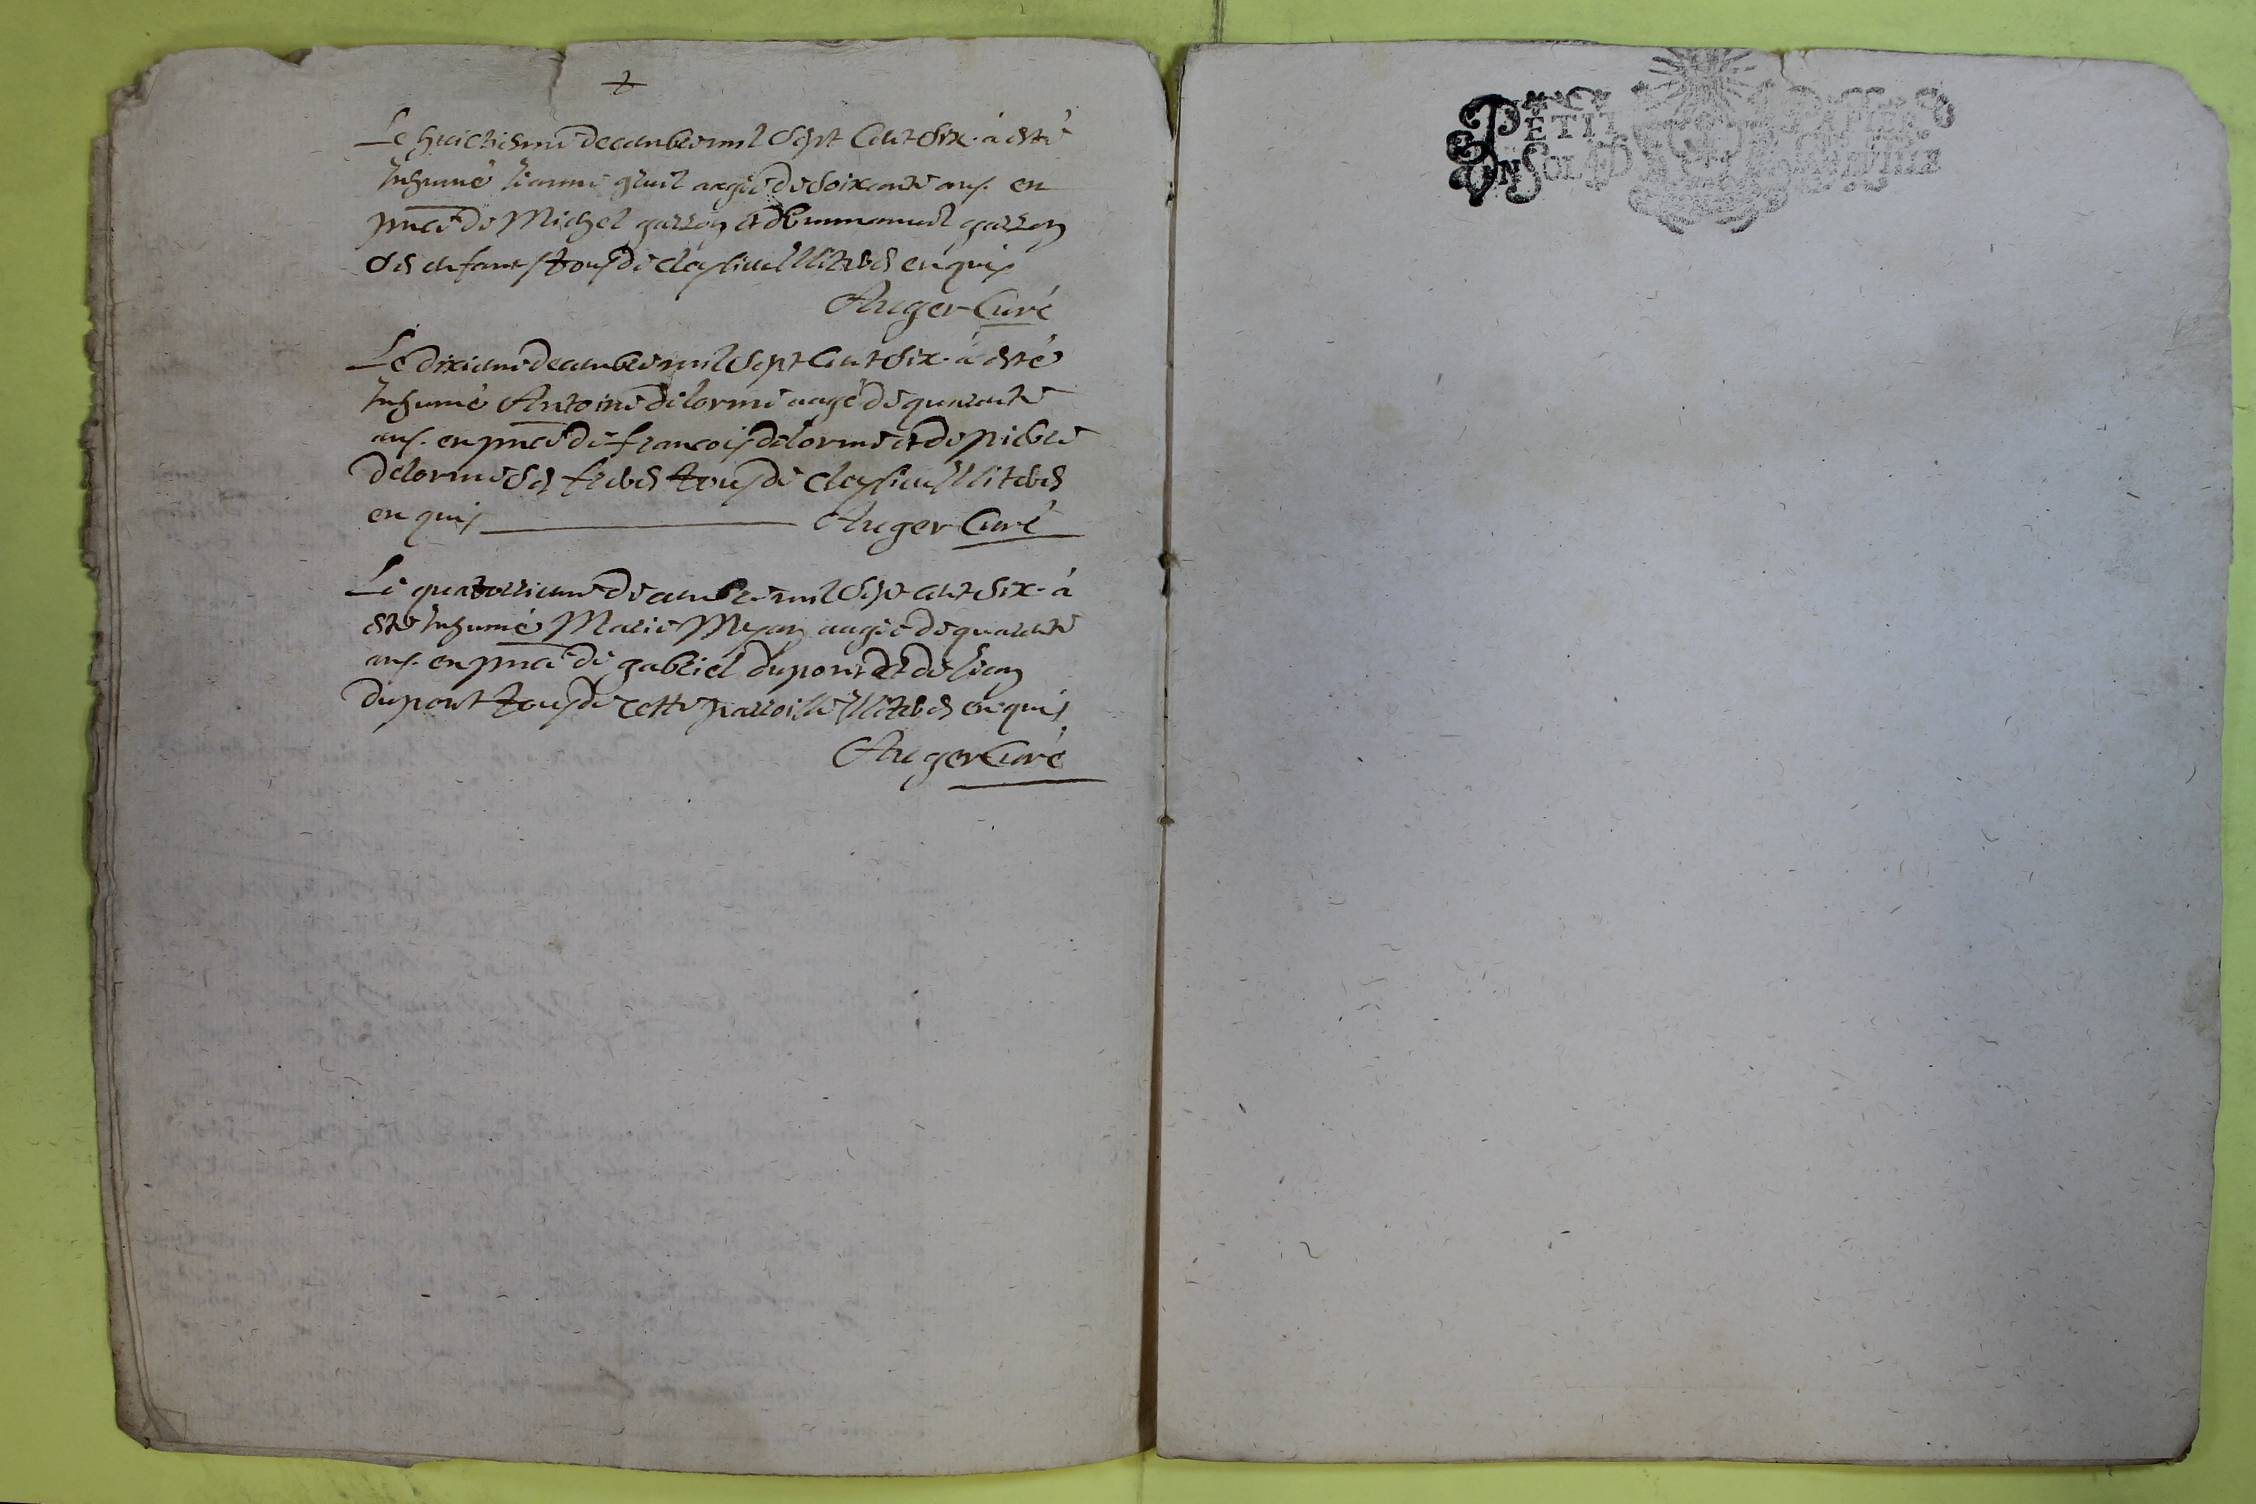 Le huictiesme decembre mil sept cent six a esté
Inhumé Jeanne aagée de soixante ans en
pnce de Michel garzon et d'Emmanuel garzon
ses enfans tous de illiterés enquis
Auger Curé
Le dixieme decembre mil sept cent six a esté
Inhumé Antoine delorme aagé de quarante
ans en pnce de françois delorme et de pierre
delorme ses freres tous de illiterés
enquis Auger Curé
Le quatorzieme decembre mil sept cent six a
esté Inhumé Marie aagée de quarante
ans en pnce de gabriel dupont et de Jean
dupont tous de cette parroisse illiterés enquis
Auger Curé
PETIT PAPIER
UN SOL